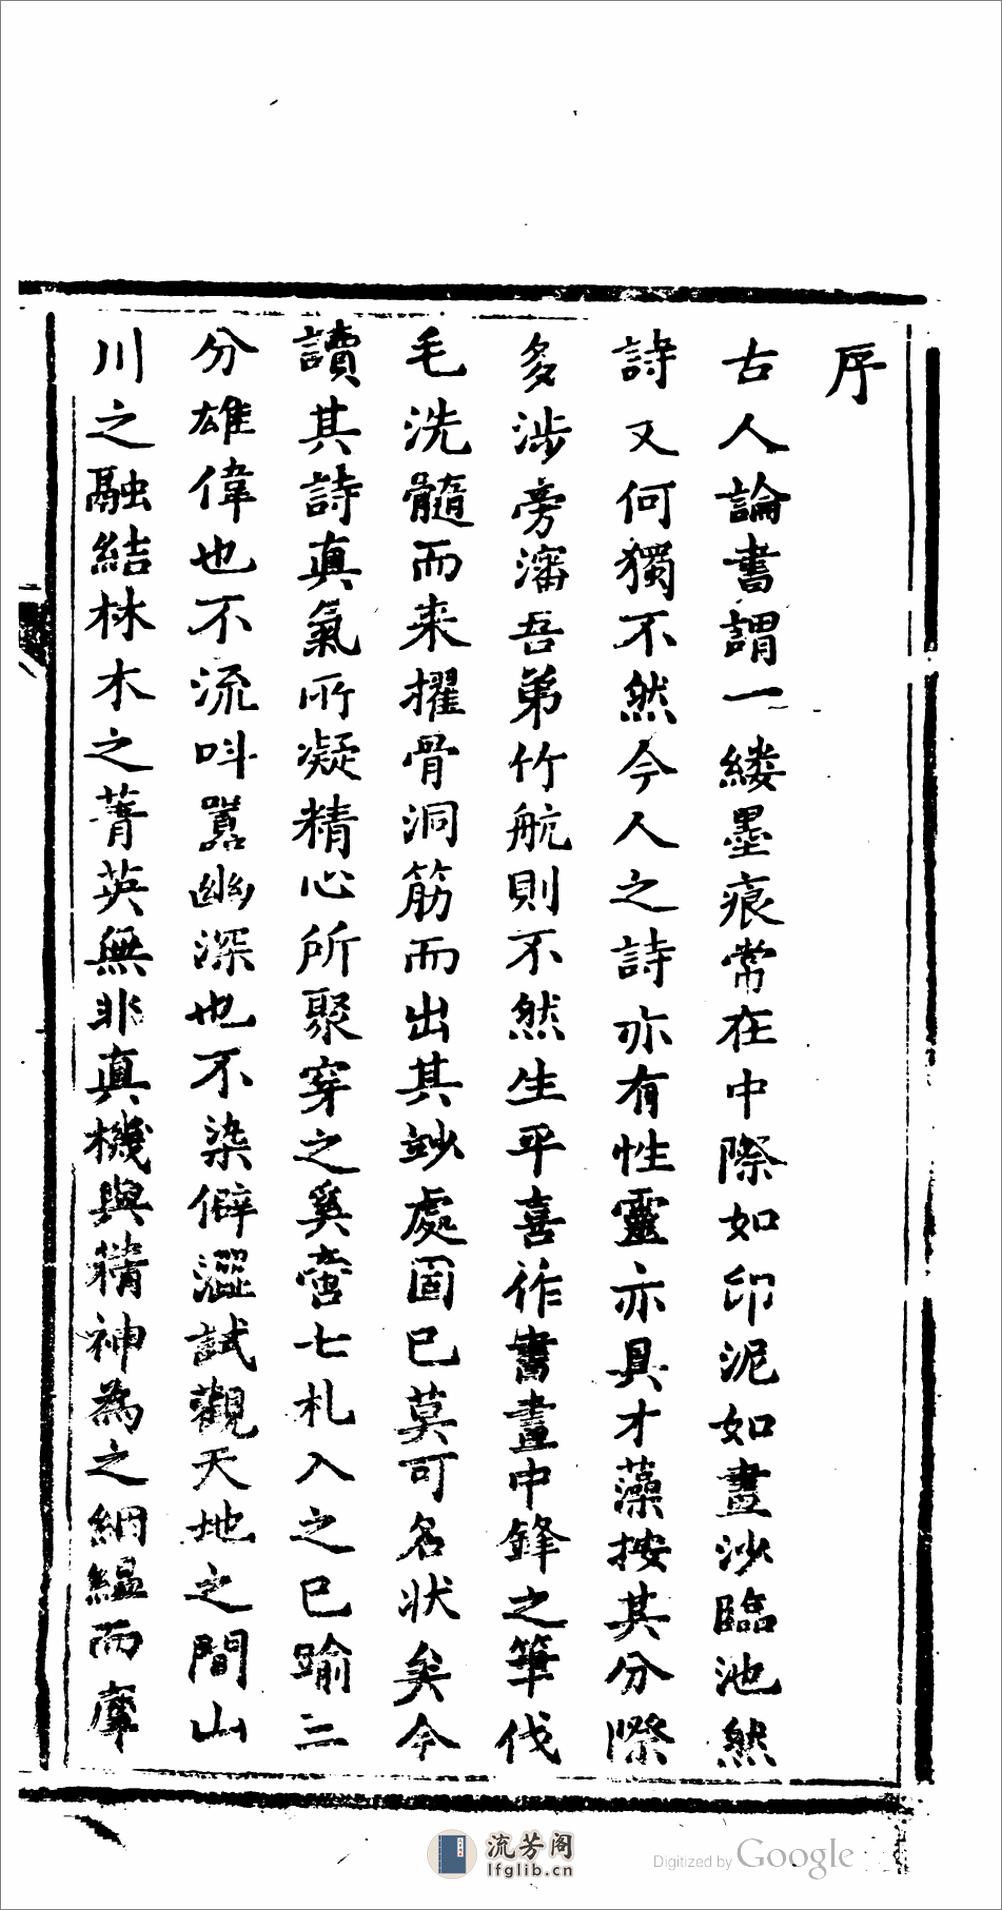 序
古人論書謂一縷墨痕常在中際如印泥如畫沙臨池然
詩又何獨不然今人之詩亦有性靈亦具才藻按其分際
多涉旁瀋吾弟竹航則不然生平喜作書畫中鋒之筆伐
毛洗髓而来擢骨洞筋而出其妙處固已莫可名状矣今
讀其詩真氣所凝精心所聚穿之奚啻七札入之已踰三
分雄偉也不流叫囂幽深也不染僻澀試觀天地之間山
川之融結林木之菁英無非真機與精神為之絪縕而摩
流芳阁
lfglib.cn
Digitized by Google